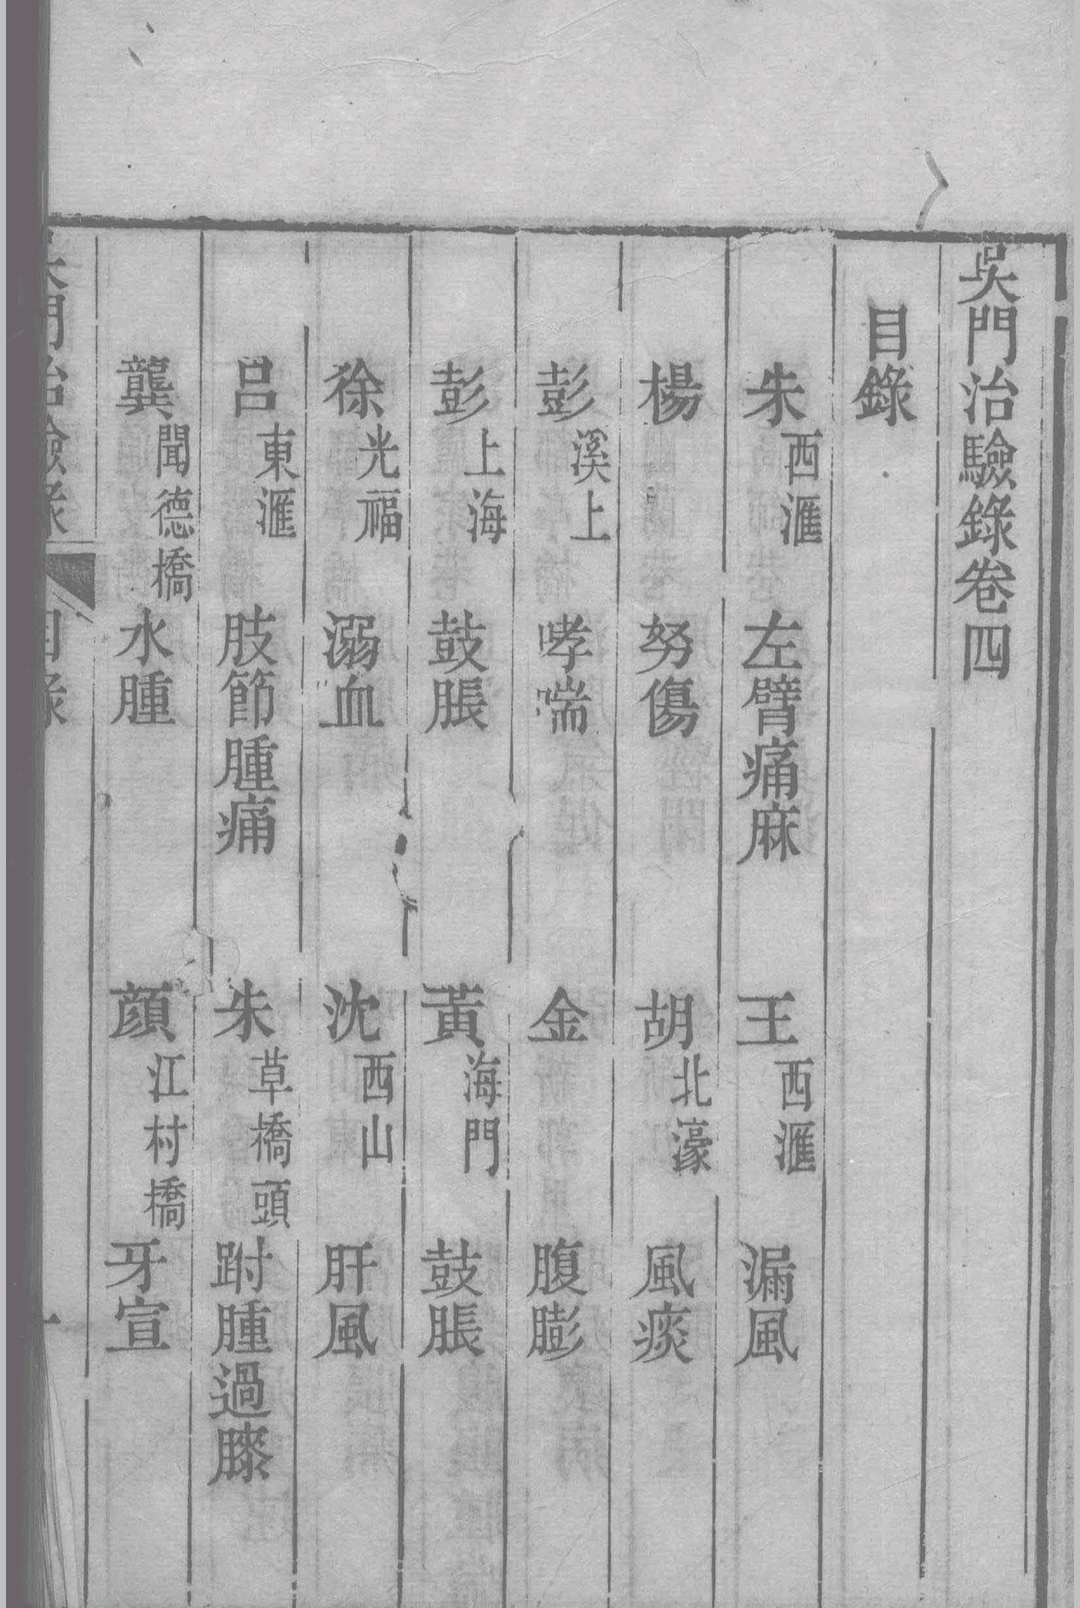 吳門治驗錄卷四
目錄
朱西滙 左臂痛麻 王西滙 漏風
楊 努傷 胡北濠 風痰
彭溪上 哮喘 金 腹膨
彭上海 鼓脹 黃海門 鼓脹
徐光福 溺血 沈西山 肝風
呂東滙 肢節腫痛 朱草橋頭 跗腫過膝
龔聞德橋 水腫 顏江村橋 牙宣
吳門治驗錄 目錄 一